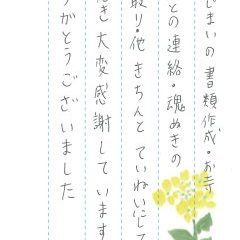 じまいの書類作成・お寺
との連絡・魂ぬきの
取り・他きちんとていねいにして
だき大変感謝しています
がとうございました